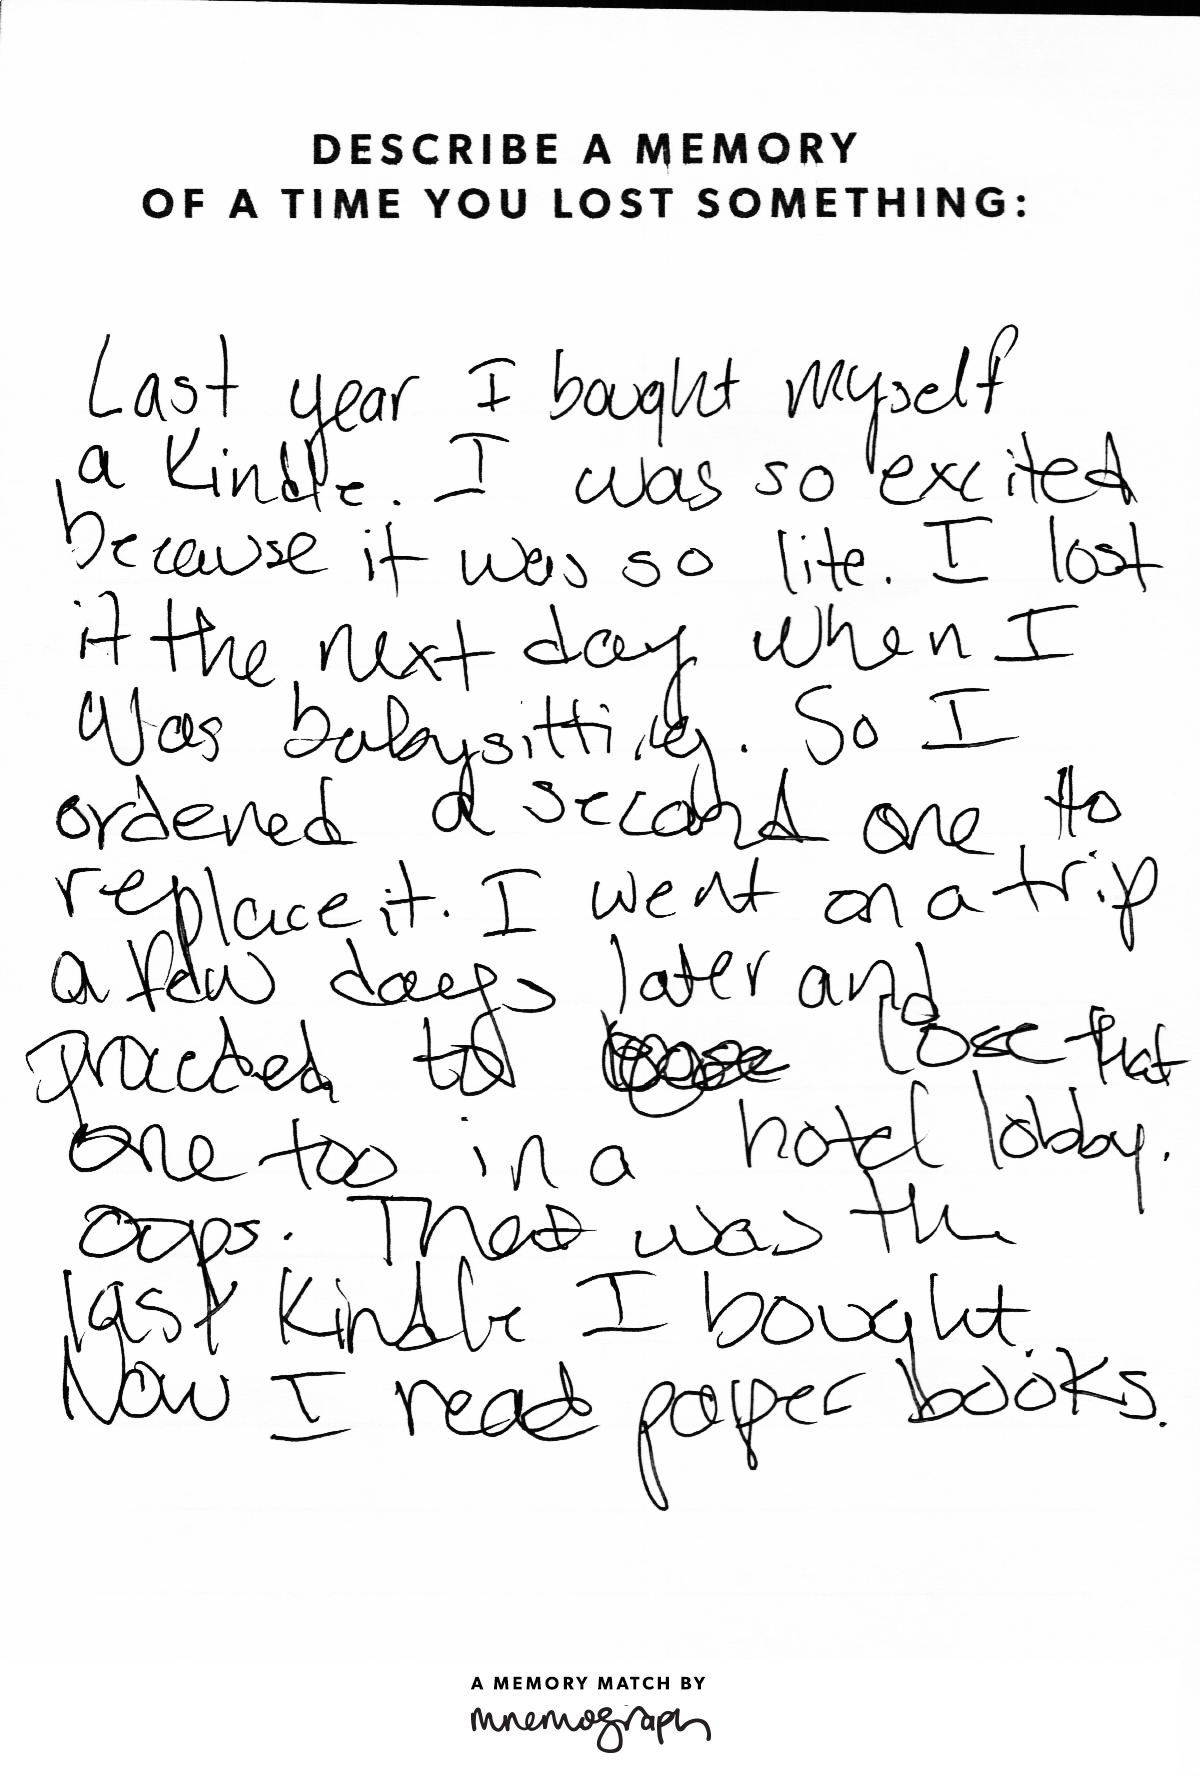 DESCRIBE A MEMORY
OF A TIME YOU LOST SOMETHING:
Last year I bought myself
a Kindle. I was so excited
because it was so lite. I lost
it the next day when I
was babysitting. So I
ordered a second one to
replace it. I went on a trip
a few days later and
to lose that
one too in a hotel lobby.
oops. That was the
last Kindle I bought.
Now I read paper books.
A MEMORY MATCH BY
mnemograph